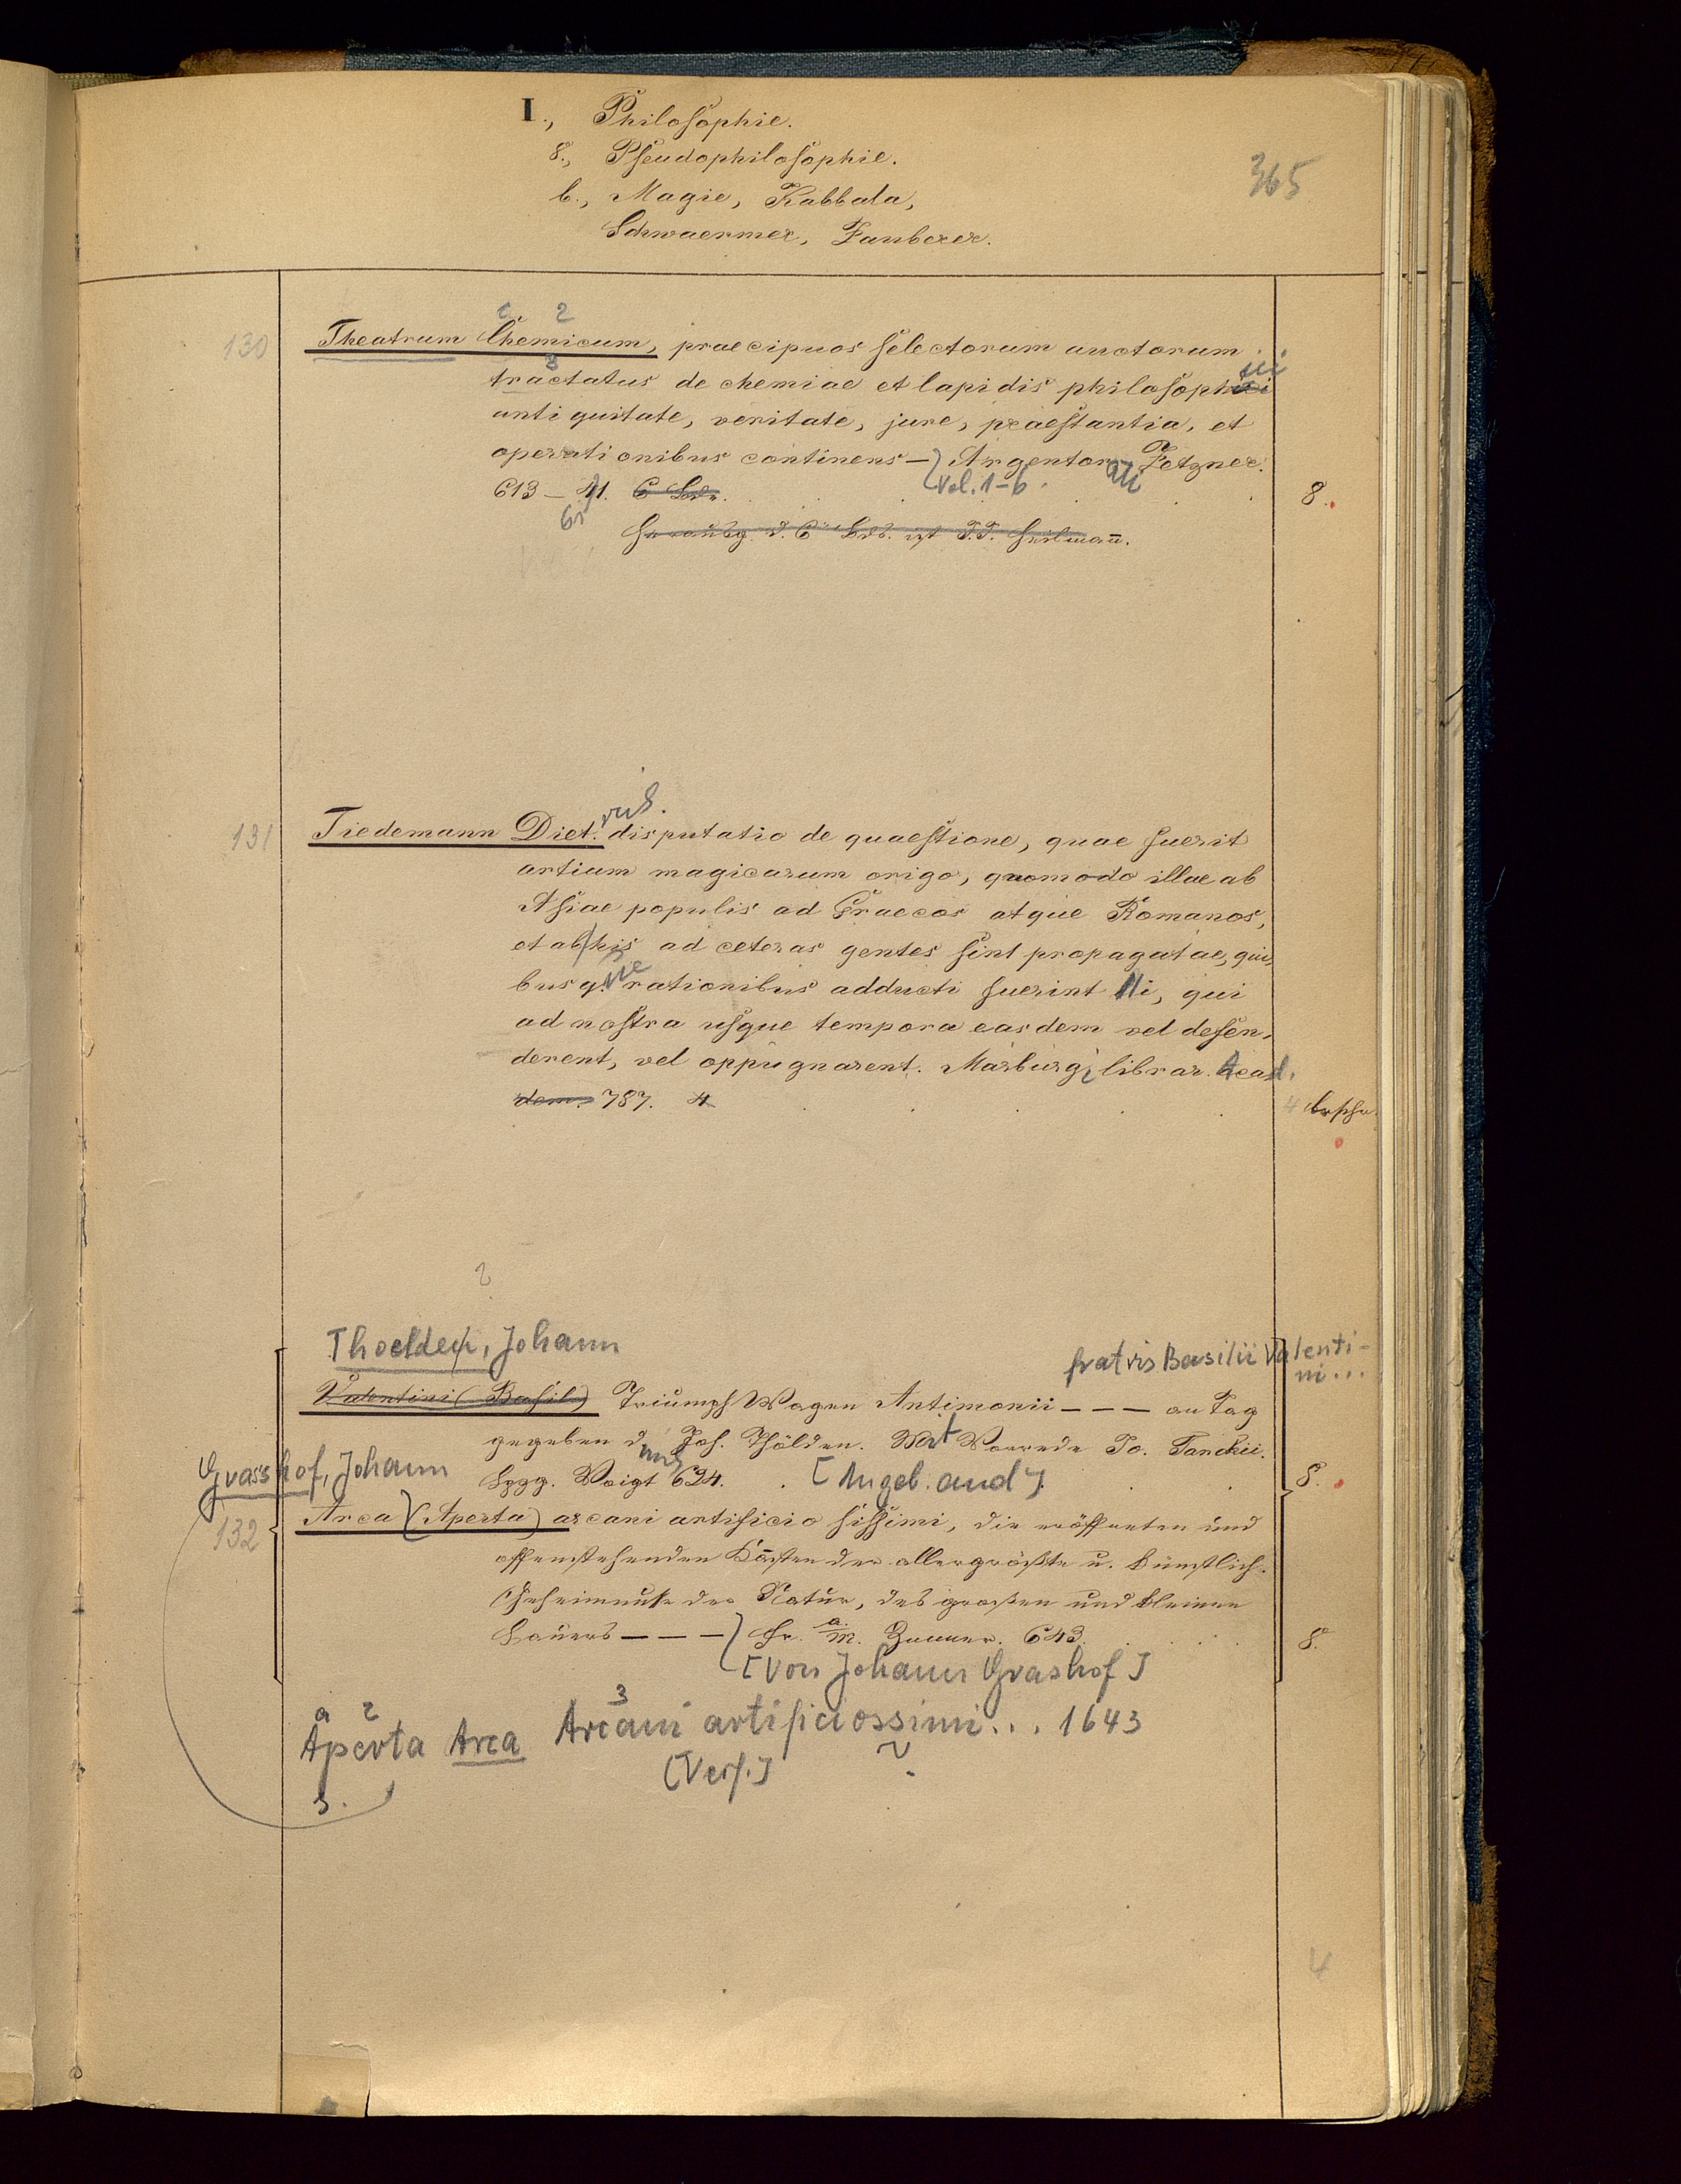 I., Philosophie.
8., Pseudophilosophie.
b., Magie, Kabbala,
Schwaermer, Zauberer.
365
130
1. 2
Theatrum Chemicum, praecipuos selectorum auctorum
3
tractatus de chemiae et lapidis philosophici
antiquitate, veritate, jure, praestantia, et
operationibus continens — Argentor. Zetzner.
Vol. 1-6.
613 — 61. 6 Bde. 8.
131
Tiedemann Diet. disputatio de quaestione, quae fuerit
artium magicarum origo, quomodo illae ab
Asiae populis ad Graecos atque Romanos,
et ab his ad ceteras gentes sint propagatae, qui-
busq. rationibus adducti fuerint ii, qui
ad nostra usque tempora easdem vel defen-
derent, vel oppugnarent. Marburgi librar. Acad.
dem. 787. 4 4 brschr.
Thoelden, Johann
fratris Basilii Valenti-
ni...
Valentini (Basil) Triumpf Wagen Antimonii — — — an Tag
gegeben d. Joh. Thölden. Mit Vorrede Jo. Tanckii.
Lpzg. Voigt 624. [Angeb. and] 8.
Grasshof, Johann
132
Arca (Aperta) arcani artificiosissimi, die eröffneten und
offenstehenden Kasten der allergrößte u. künstlich.
Geheimnuße der Natur, des großen und kleinen
Bauers — — — Fr. a. M. 643. 8.
[Von Johann Grashof]
a 2 3
Aperta Arca Arcani artificiossimi... 1643
[Verf.]
s.
4